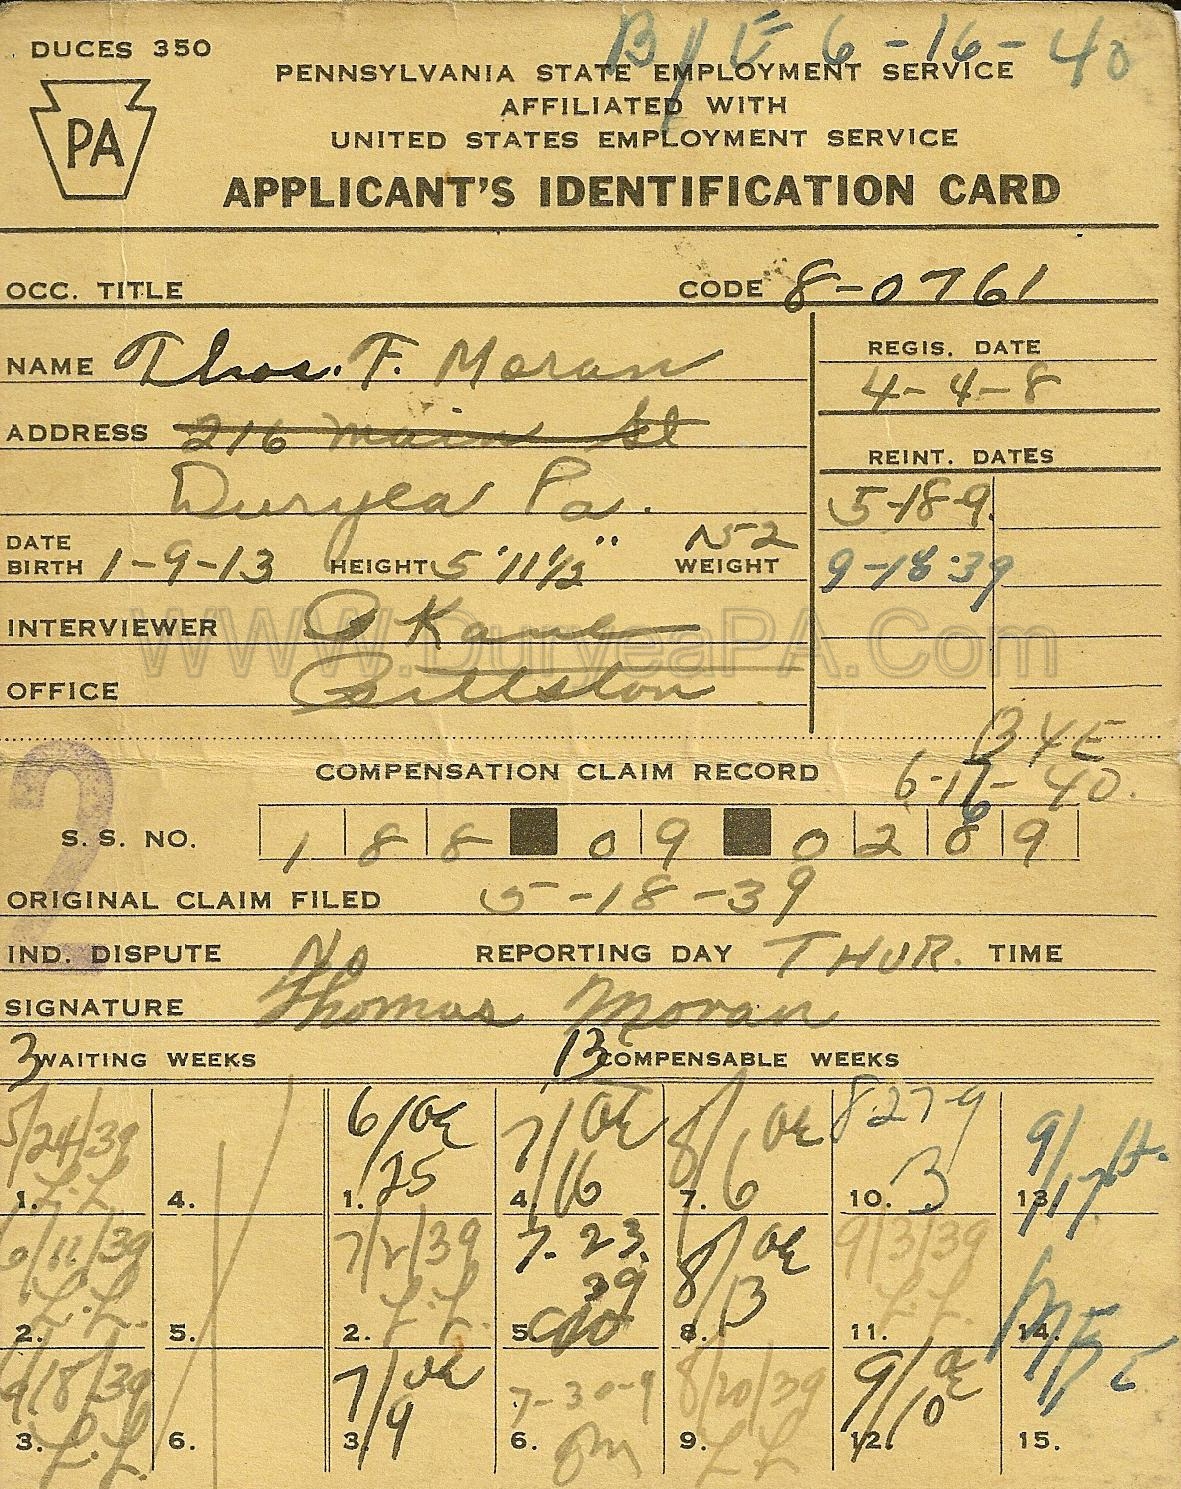 DUCES 350
B/E 6-16-40
PA
PENNSYLVANIA STATE EMPLOYMENT SERVICE
AFFILIATED WITH
UNITED STATES EMPLOYMENT SERVICE
APPLICANT'S IDENTIFICATION CARD
OCC. TITLE CODE 8-0761
NAME Thos. F. Moran
REGIS. DATE
4-4-8
ADDRESS 216 Main St
Duryea Pa.
REINT. DATES
5-18-9
9-18-39
DATE BIRTH 1-9-13 HEIGHT 5'11½" WEIGHT 152
INTERVIEWER
OFFICE Pittston
WWW.DuryeaPA.Com
BYE
6-16-40.
2
COMPENSATION CLAIM RECORD
S. S. NO. 188 09 0289
ORIGINAL CLAIM FILED 5-18-39
IND. DISPUTE No REPORTING DAY THUR. TIME
SIGNATURE Thomas Moran
3 WAITING WEEKS 13 COMPENSABLE WEEKS
5/24/39 L.L. 1.
4.
6/25 OE 1.
7/16 OE 4.
8/6 OE 7.
8-27-9 3 10.
9/17 13.
6/11/39 L.L. 2.
5.
7/2/39 L.L. 2.
7.23.39 5.
8/13 OE 8.
9/3/39 L.L. 11.
BYE 14.
6/18/39 L.L. 3.
6.
7/9 OE 3.
7-30-9 6.
8/20/39 LL 9.
9/10 OE 12.
15.